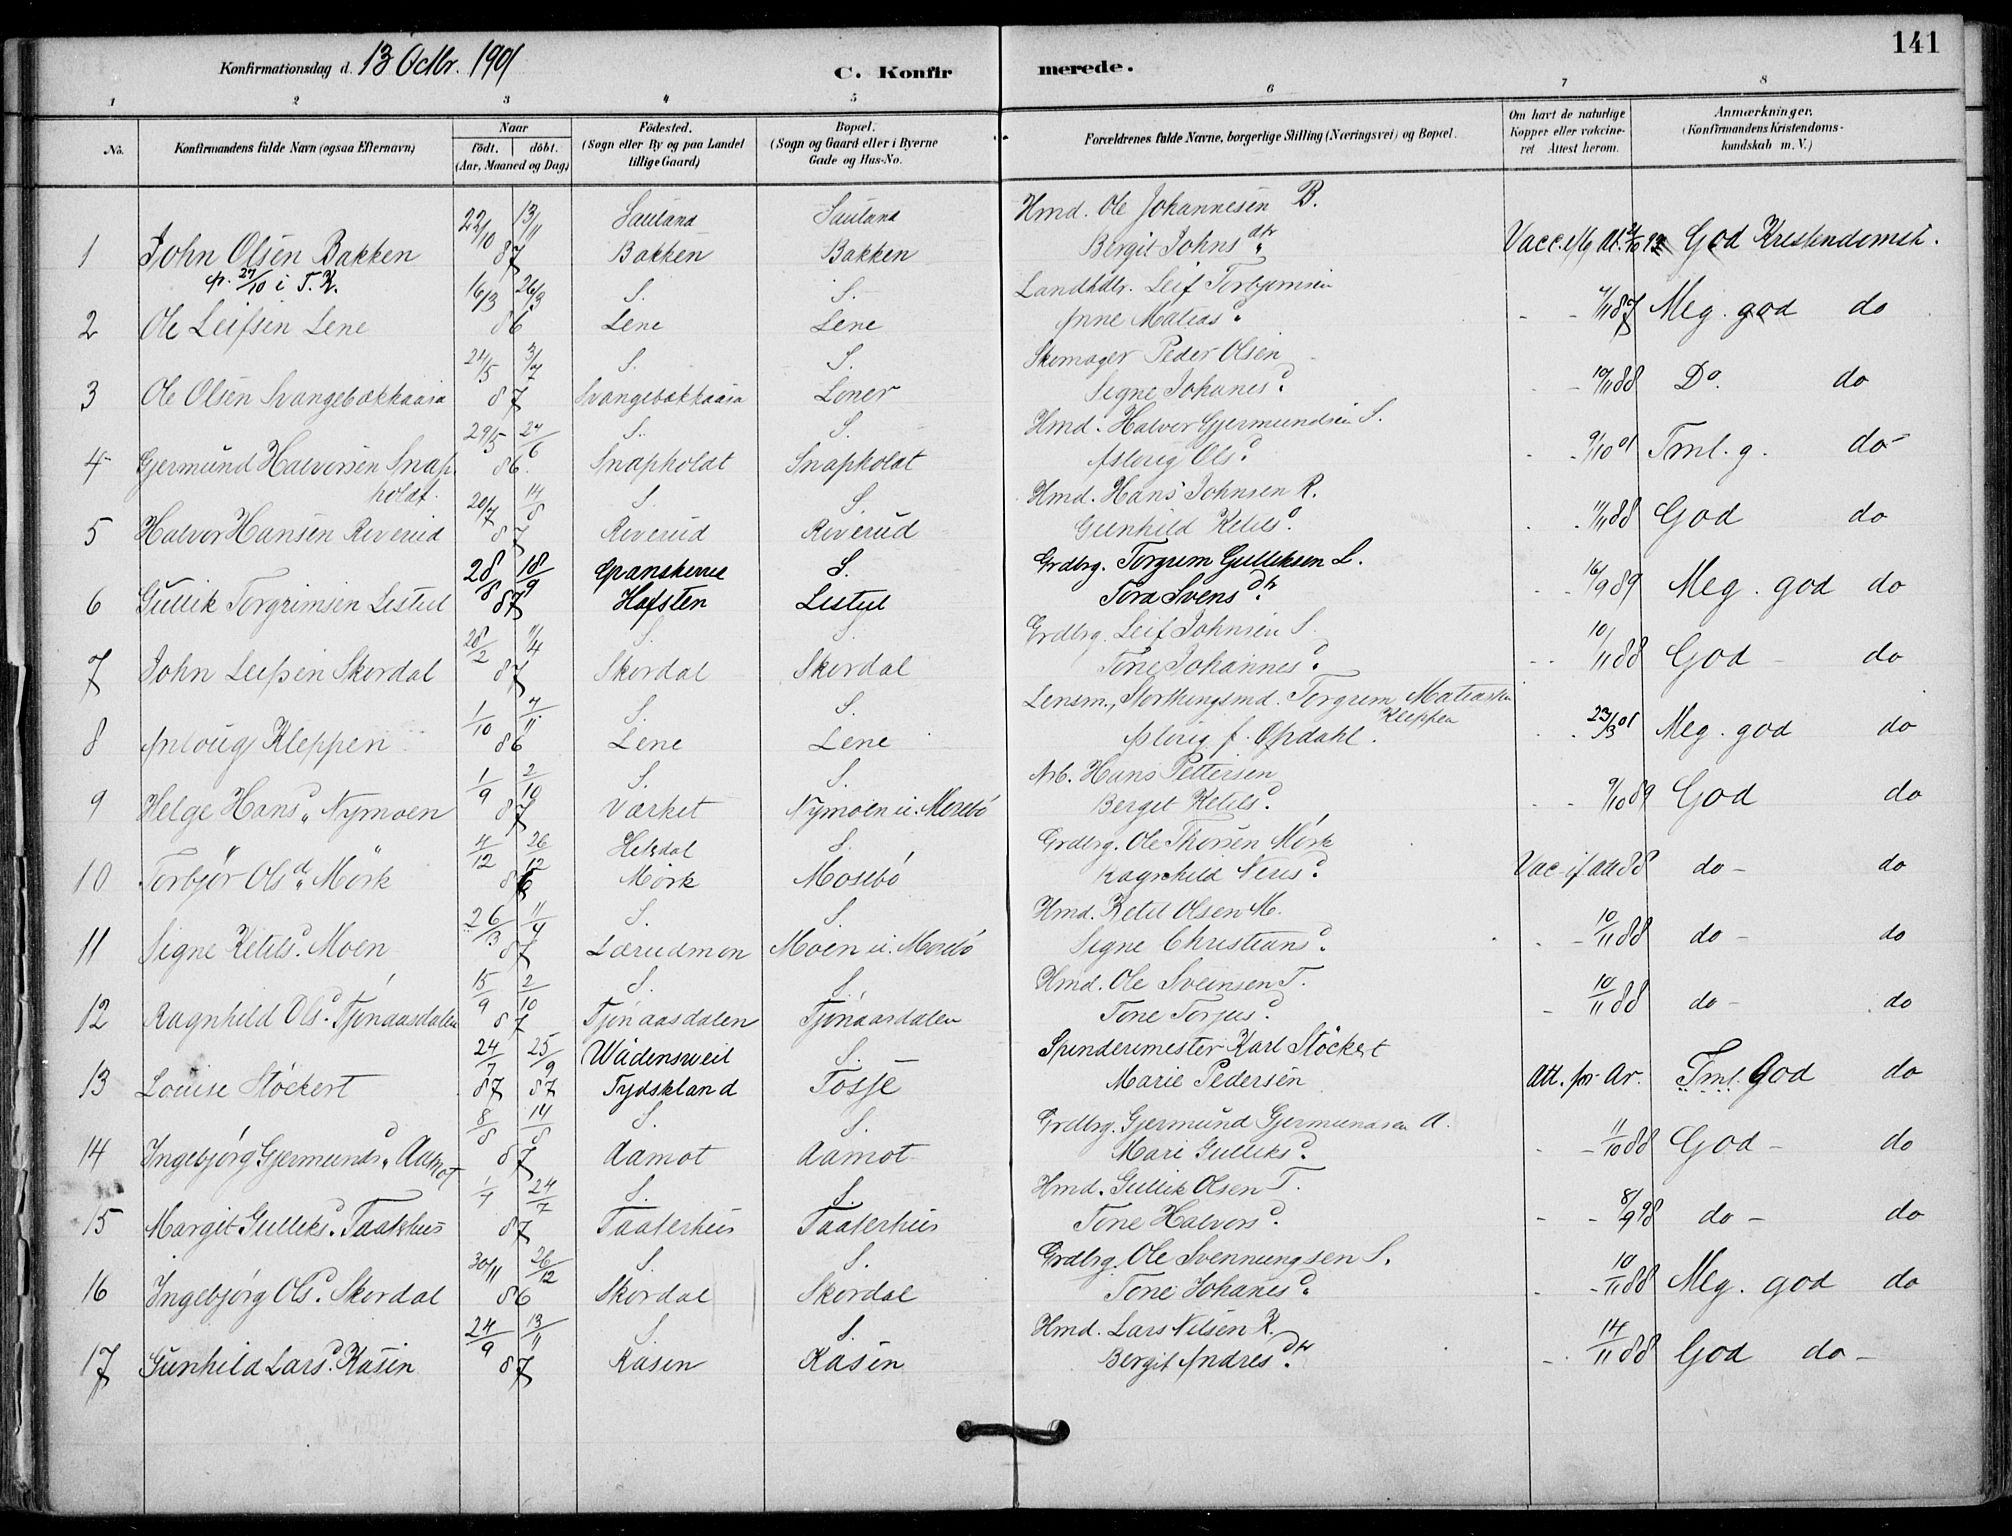 141
Konfirmationsdag d. 13 Octbr. 1901
C. Konfirmerede.
1 2 3 4 5 6 7 8
No.
Konfirmandens fulde Navn (ogsaa Efternavn)
Naar
födt. döbt.
(Aar, Maaned og Dag)
Födested.
(Sogn eller By og paa Landet
tillige Gaard)
Bopæl.
(Sogn og Gaard eller i Byerne
Gade og Hus-No.
Forældrenes fulde Navne, borgerlige Stilling (Næringsvei) og Bopæl.
Om havt de naturlige
Kopper eller vakcine-
ret Attest herom.
Anmærkninger.
(Konfirmandens Kristendoms-
kundskab m. V.)
22/10 13/11 Sauland Sauland Hmd. Ole Johannesen B.
1 John Olsen Bakken 87 Bakken Bakken Bergit Johnsdtr. Vacc. God Kristendomsk.
27/10 i T. K.
16/3 26/3 S. S. Landhdlr. Leif Torbjørnsen
2 Ole Leifsen Lene 86 Lene Lene Anne Matiasd. - - 7/11 87 Meg. god do
24/5 3/7 S. S. Skomager Peder Olsen
3 Ole Olsen Svangebækkaasa 87 Svangebækkaasa Loner Signe Johanesd. - - 10/11 88 Do. do
29/5 27/6 S. S. Hmd. Halvor Gjermundsen S.
4 Gjermund Halvorsen Snap- 86. Snapholdt Snapholdt Aslaug Olsd. - - 9/10 01 Tml. g. do-
holdt.
20/7 14/8 S. S. Hmd. Hans Johnsen R.
5 Halvor Hansen Riverud 87 Riverud Riverud Gunhild Ketilsd. - - 11/11 88 God do
28/8 18/9 Gransherred S. Grdbrg. Torgrim Gulliksen L.
6 Gullik Torgrimsen Listul 87 Hafsten Listul Tora Svensdtr. - - 16/9 89 Meg. god do
28/2 11/4 S. S. Grdbrg. Leif Johnsen S.
7 John Leifsen Skordal 87 Skordal Skordal Tone Johannesd. - - 10/11 88 God - do
1/10 7/11 S. S. Lensm., Storthingsmd. Torgrim Matiassen
Kleppen
8 Anloug Kleppen 86 Lene Lene Aslaug f. Opdahl. - - 23/3 01 Meg. god do
1/9 2/10 S. S. Arb. Hans Pettersen
9 Helge Hansd. Nymoen 87 Værket Nymoen u. Mosebö Bergit Ketilsd. - - 9/10 89 God do
4/12 26/12 Hitterdal S. Grdbrg. Ole Thorsen Mörk
10 Torbjør Olsd. Mörk 86 Mörk Mosebö Ragnhild Nirisd. Vac. if. att 88 do - do
26/3 11/4 S. S. Hmd. Ketil Olsen M.
11 Signe Ketilsd. Moen 87 Lærudmoen Moen u. Mosebö Signe Christiansd. - - 10/11 88 do - do
15/9 2/10 S. S. Hmd. Ole Sveinsen T.
12 Ragnhild Olsd. Tjönaasdalen 87 Tjönaasdalen Tjönaasdalen Tone Torjusd. - 10/11 88 do - do
24/7 25/9 Wädensweil S. Spinderimester Karl Stöckert
13 Louise Stöckert 87 87 Tydskland Tosje Marie Pedersen Att. fr. Ar. Tml. God do
8/8 14/8 S. S. Grdbrg. Gjermund Gjermundsen A.
14 Ingebjørg Gjermundsd. Aamot 87 Aamot Aamot Mari Gulliksd. - - 11/10 88 God - do
1/7 24/7 S. S. Hmd. Gullik Olsen T.
15 Margit Gulliksd. Taaterhus 87 Taaterhus Taaterhus Tone Halvorsd. - - 8/9 98 do - do
30/11 26/12 S. S. Grdbrg. Ole Svennungsen S.
16 Ingebjørg Olsd. Skordal 86 Skordal Skordal Tone Johanesd. - - 10/11 88 Meg. god do
24/9 13/11 S. S. Hmd. Lars Nilsen K.
17 Gunhild Larsd. Kasin 87 Kasen Kasen Bergit Andresdtr. - 14/11 88 God do -